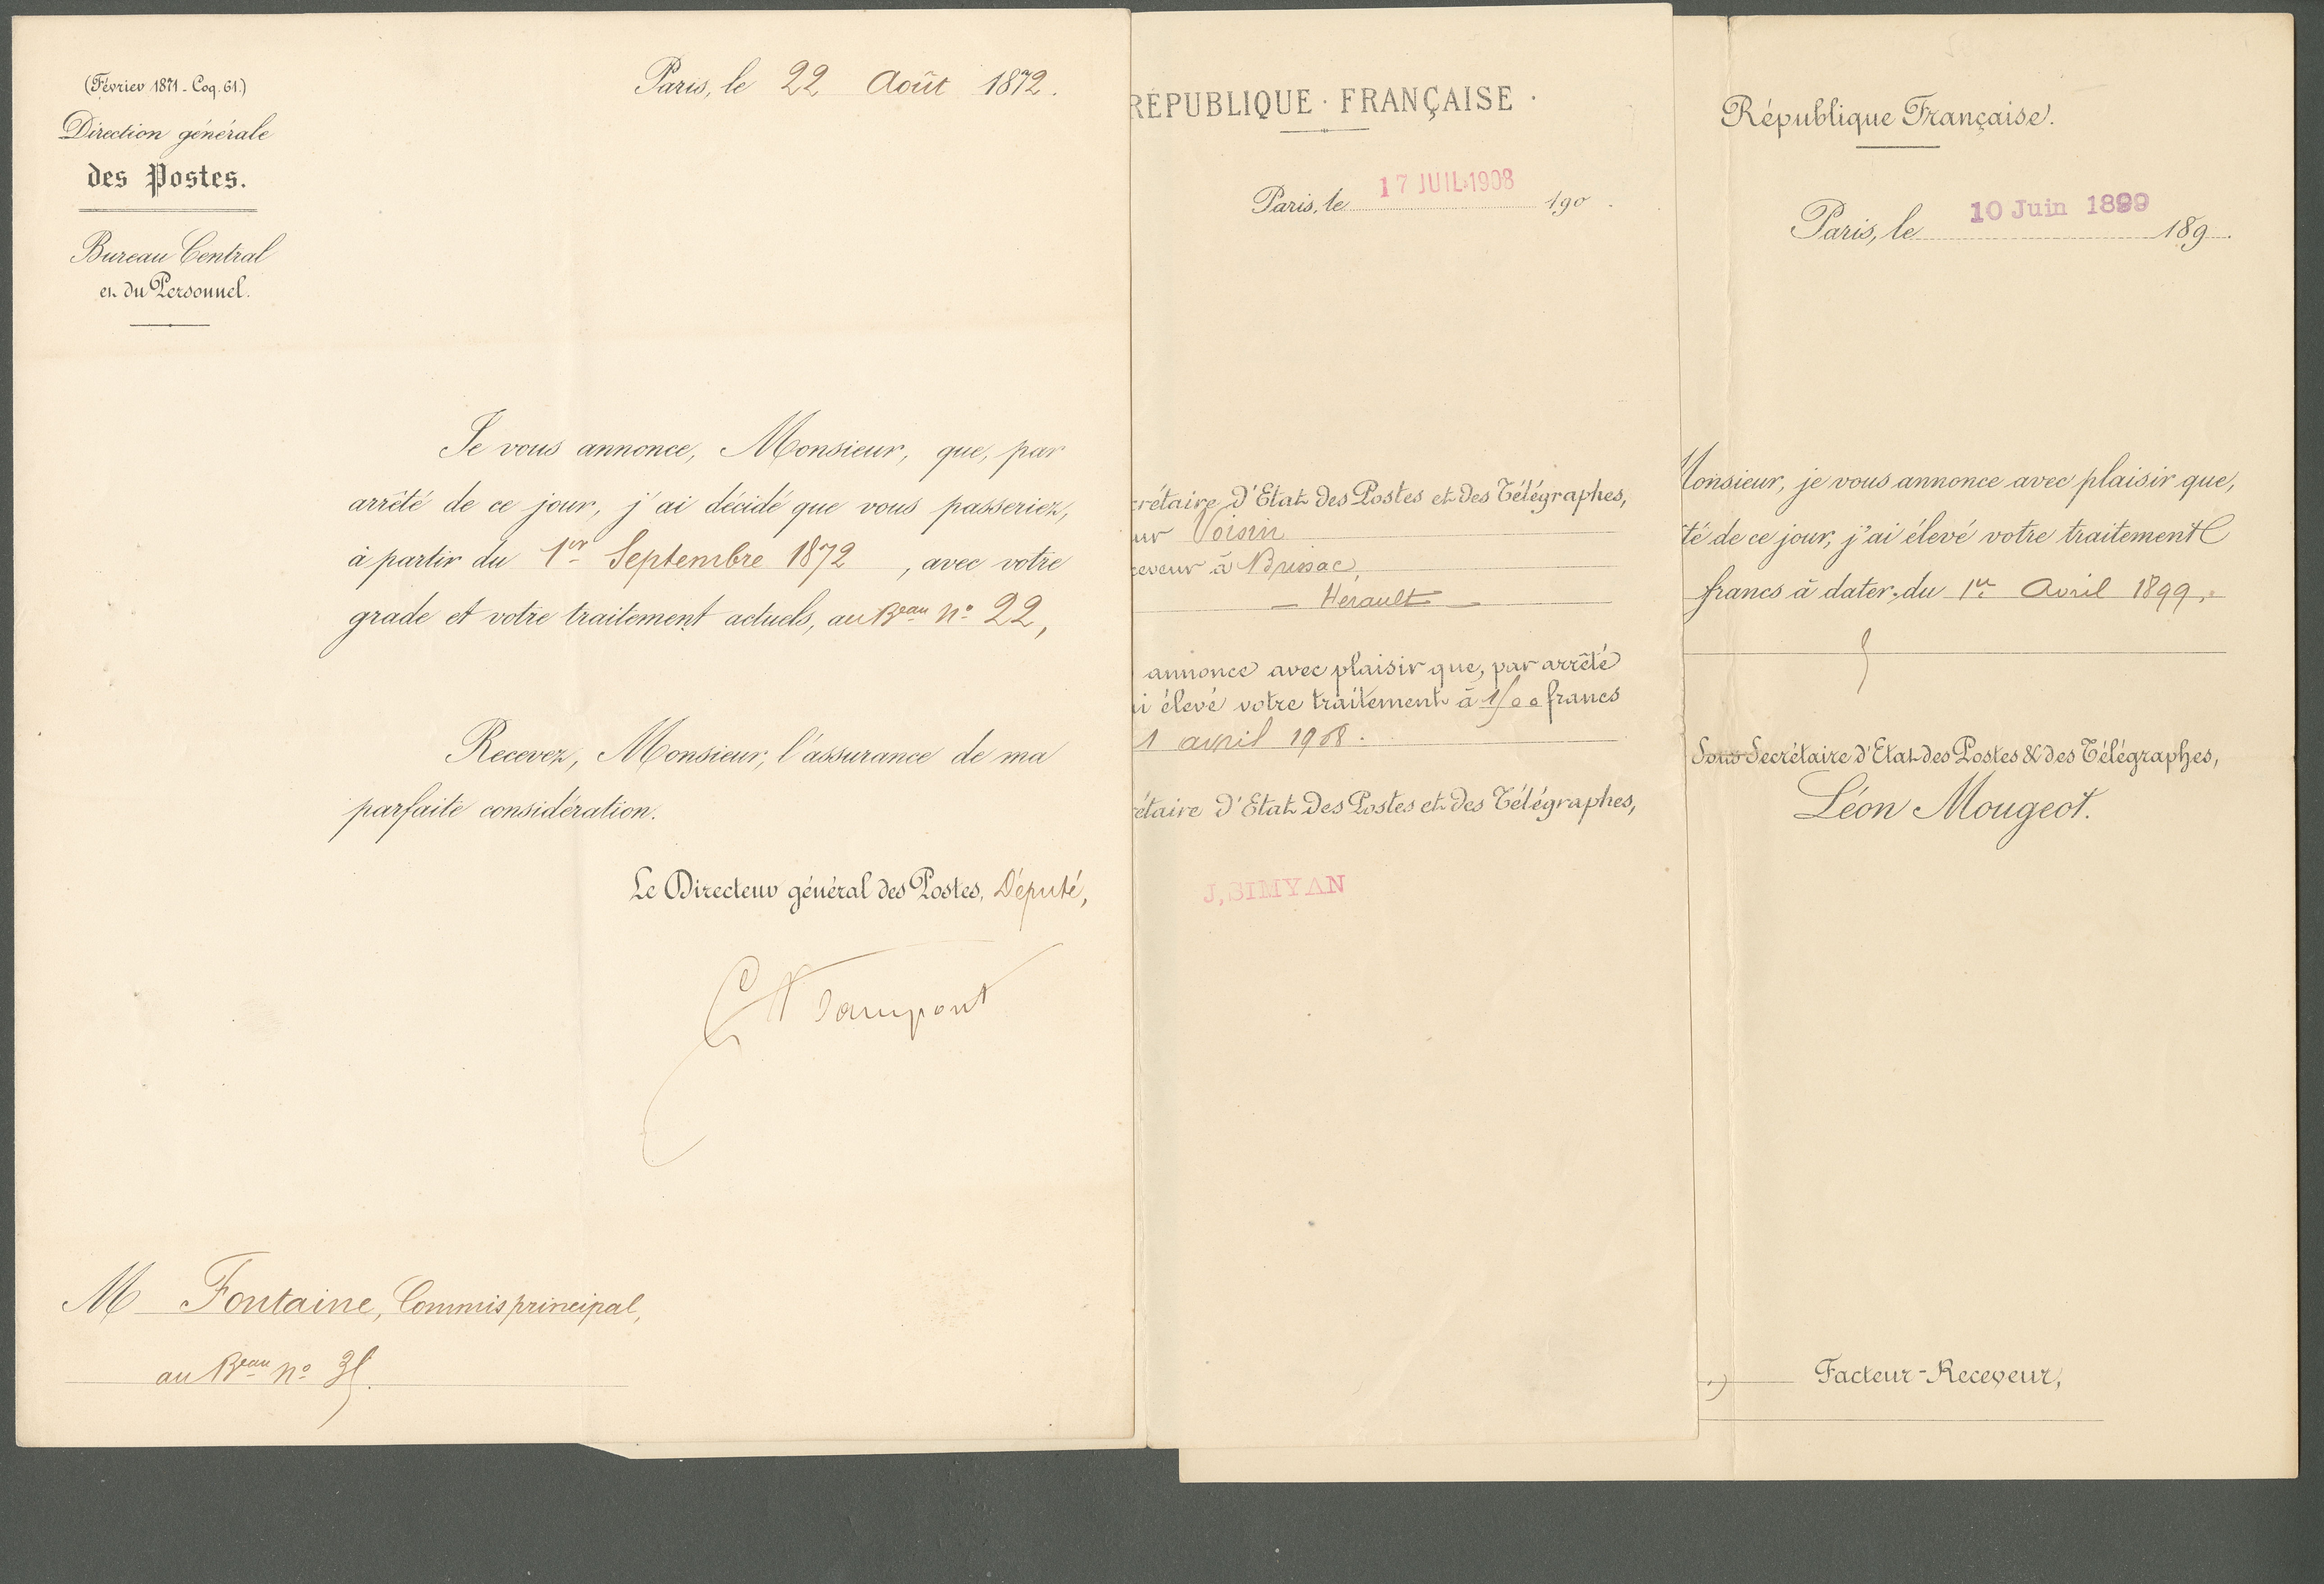 (Février 1871 - Coq. 61.)
Direction générale
des Postes.
Bureau Central
et du Personnel.
Paris, le 22 Août 1872.
Je vous annonce, Monsieur, que, par
arrêté de ce jour, j'ai décidé que vous passeriez,
à partir du 1er Septembre 1872, avec votre
grade et votre traitement actuels, au Beau No 22,
Recevez, Monsieur, l'assurance de ma
parfaite considération.
Le Directeur général des Postes, Député,
Rampont
M Fontaine, Commis principal,
au Beau No
RÉPUBLIQUE · FRANÇAISE ·
Paris, le 17 JUIL 1908 190 .
crétaire d'Etat des Postes et des Télégraphes,
ur Voisin
ceveur à Brissac,
Hérault
annonce avec plaisir que, par arrêté
i élevé votre traitement à francs
1 avril 1908.
étaire d'Etat des Postes et des Télégraphes,
J, SIMYAN
République Française.
Paris, le 10 Juin 1899 189 .
Monsieur, je vous annonce avec plaisir que,
té de ce jour, j'ai élevé votre traitement
francs à dater du 1er Avril 1899,
Sous-Secrétaire d'Etat des Postes & des Télégraphes,
Léon Mougeot.
Facteur-Receveur,